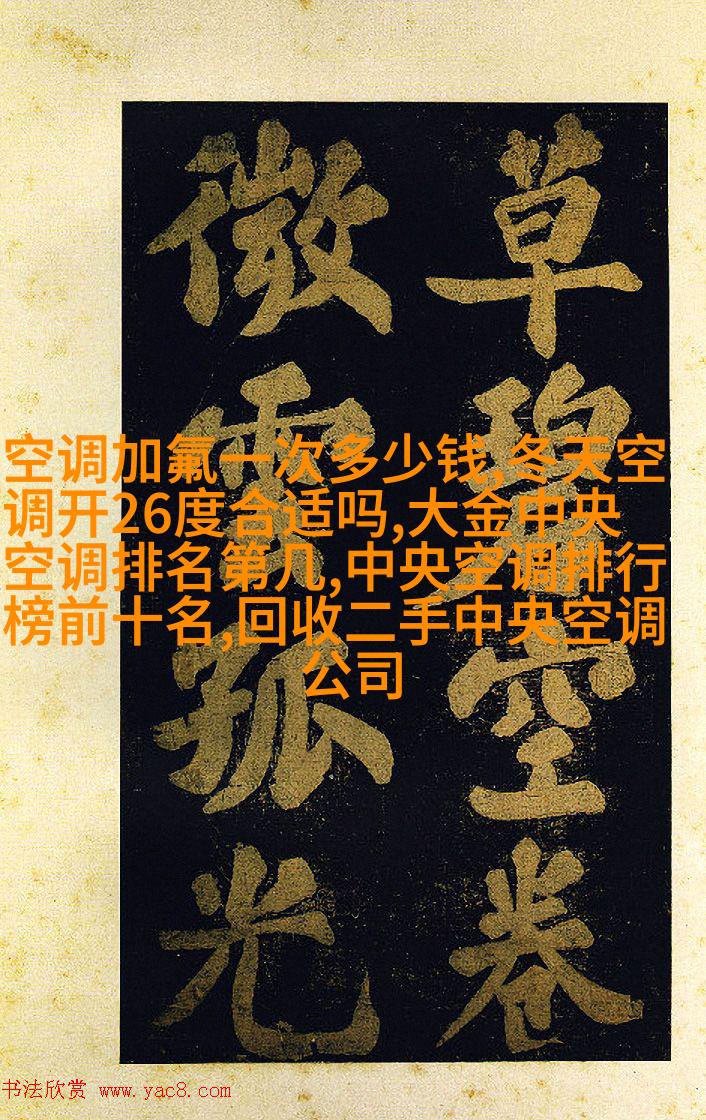 草碧空卷
微雲孤光
空调加氟一次多少钱,冬天空
调开26度合适吗,大金中央
空调排名第几,中央空调排行
榜前十名,回收二手中央空调
公司
书法欣赏 www.yac8.com